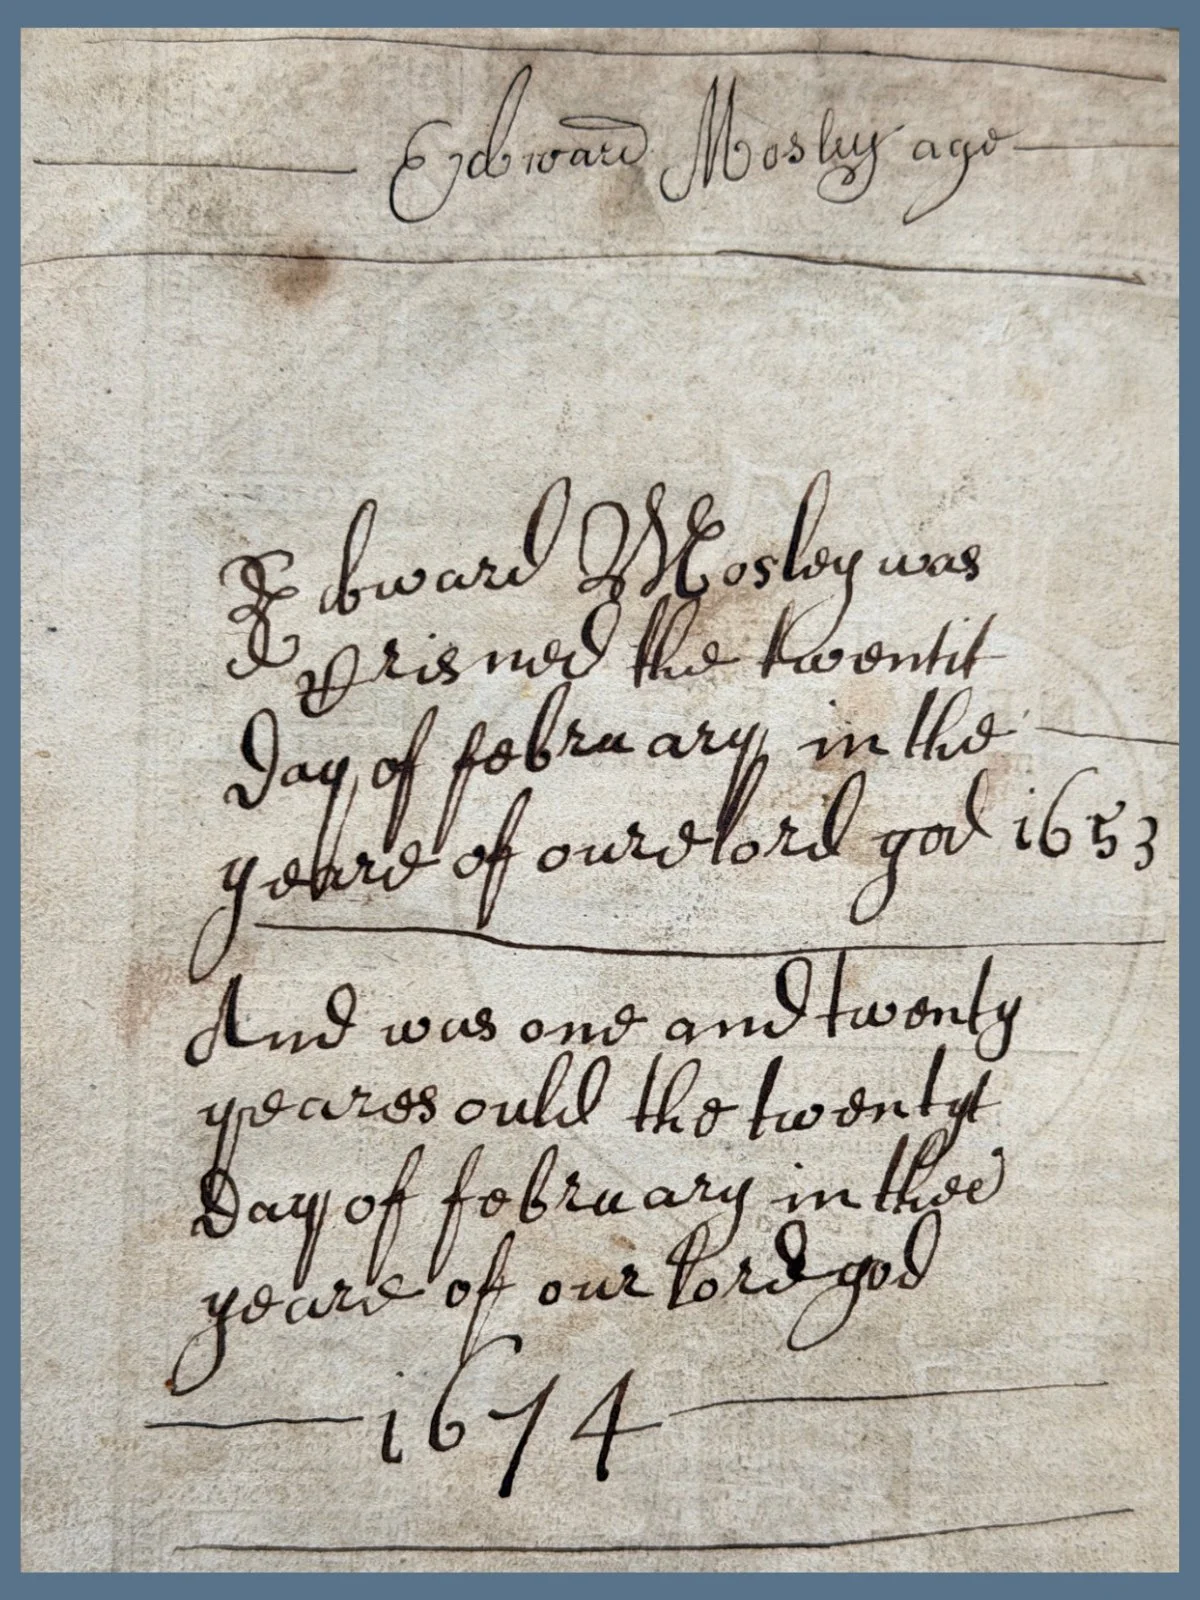 Edward Mosley age
Edward Mosley was
Crisned the twentit
Day of february in the
yeare of oure lord god 1653
And was one and twenty
yeares ould the twentyt
Day of february in thee
yeare of our lord god
1674